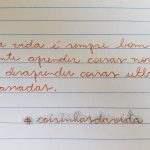 a vida é sempre bom
nte aprender coisas nov
desaprender coisas ult
assadas.
# coisinhasdavida